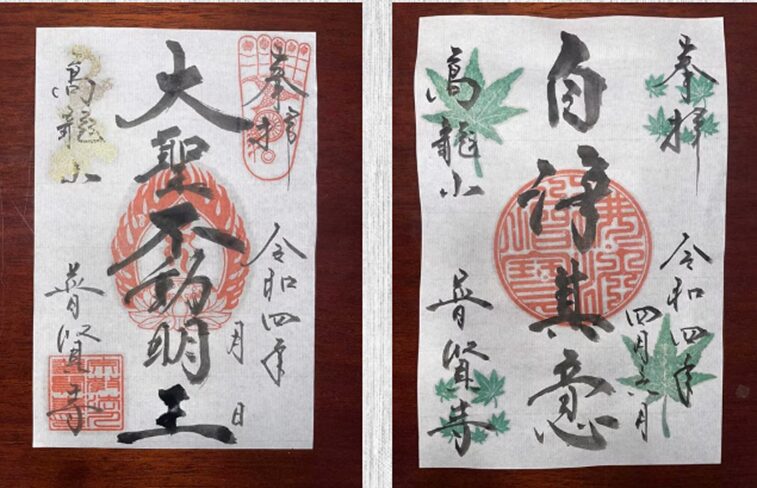 奉拝
令和四年
月 日
大聖不動明王
高龍山
普賢寺
奉拝
令和四年
四月
自浄其意
高龍山
普賢寺
佛法僧寶